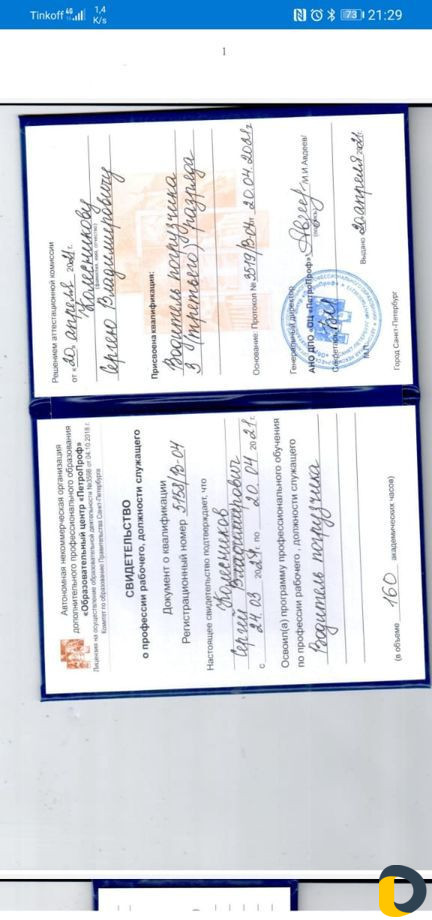 Tinkoff 4G 1,4 K/s 73 21:29
1
Автономная некоммерческая организация
дополнительного профессионального образования
«Образовательный центр «ПетроПроф»
Лицензия на осуществление образовательной деятельности №3598 от 04.10.2018 г.
Комитет по образованию Правительства Санкт-Петербурга
СВИДЕТЕЛЬСТВО
о профессии рабочего, должности служащего
Документ о квалификации
Регистрационный номер 5158/18-04
Настоящее свидетельство подтверждает, что
Колесников
Сергей Владимирович
с 24.03 2021г. по 20.04 2021 г.
Освоил(а) программу профессионального обучения
по профессии рабочего , должности служащего
Водитель погрузчика
(в объеме 160 академических часов)
Решением аттестационной комиссии
от «20» апреля 2021г.
Колесникову
(фамилия, имя, отчество)
Сергею Владимировичу
Присвоена квалификация:
Водитель погрузчика
3 (третьего) разряда
Основание: Протокол № 3519/18-04 от 20.04.2021г.
Генеральный директор
АНО ДПО «ОЦ «ПетроПроф» /М.И Авдеев/
(подпись)
М.П.
Город Санкт-Петербург Выдано 20 апреля 2021г.